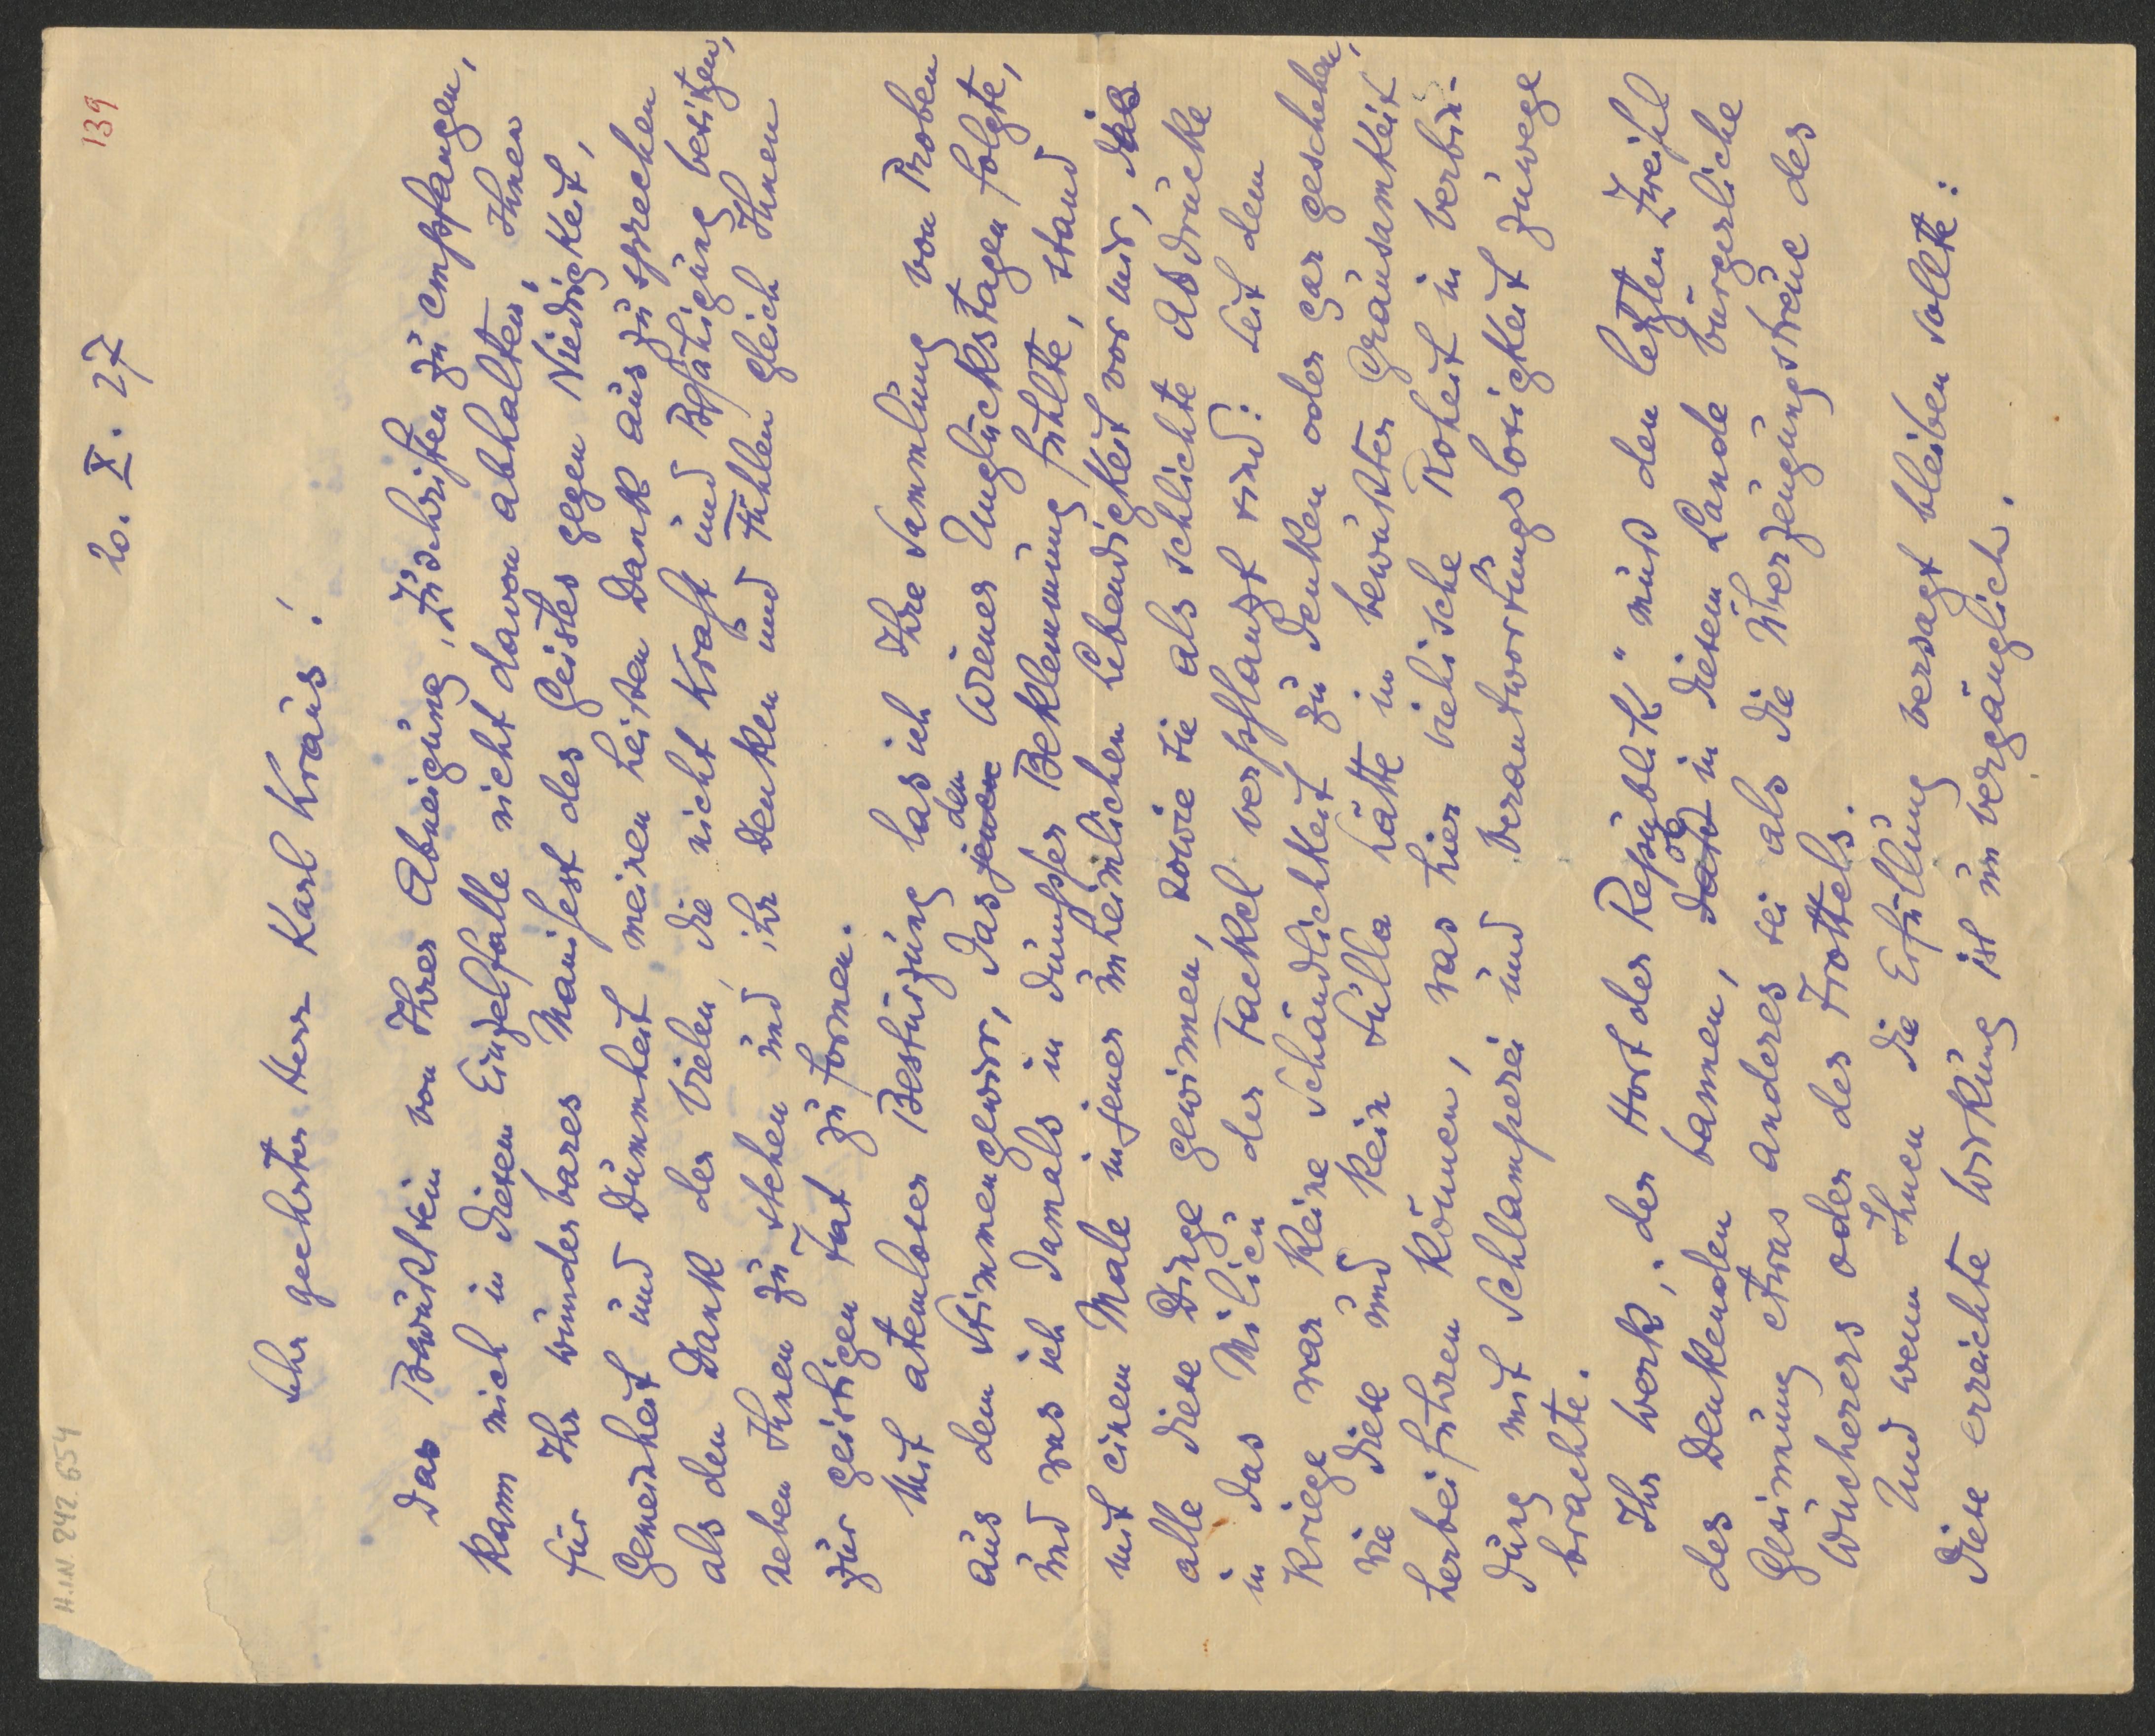 H.I.N. 242.654
139
20. X. 27
Sehr geehrter Herr Karl Kraus!
Das Bewußtsein von Ihrer Abneigung, Zuschriften zu empfangen,
kann mich in diesem Einzelfalle nicht davon abhalten, Ihnen
für Ihr wunderbares Manifest des Geistes gegen Niedrigkeit,
Gemeinheit und Dummheit meinen heißen Dank auszusprechen
als den Dank der Vielen, die nicht Kraft und Befähigung besitzen,
neben Ihnen zu stehen und ihr Denken und Fühlen gleich Ihnen
zur geistigen Tat zu formen.
Mit atemloser Bestürzung las ich Ihre Sammlung von Proben
aus dem Stimmengewirr, das jenen den Wiener Unglückstagen folgte,
und was ich damals in dumpfer Beklemmung fühlte, stand
mit einem Male in jener unheimlichen Lebendigkeit vor mir, die
alle diese Dinge gewinnen, sowie sie als schlichte Abdrucke
in das Milieu der Fackel verpflanzt sind: Seit dem
Kriege war keine Schändlichkeit zu denken oder gar geschehen,
wie diese und kein Sulla hätte in bewußter Grausamkeit
herbeiführen können, was hier viehische Roheit in Verbin-
dung mit Schlamperei und Verantwortungslosigkeit zuwege
brachte.
Ihr Werk, „der Hort der Republik" muß den letzten Zweifel
des Denkenden bannen, daß ob in diesem Lande bürgerliche
Gesinnung etwas anderes sei als die Überzeugungstreue des
Wucherers oder des Trottels.
Und wenn Ihnen die Erfüllung versagt bleiben sollte:
diese erreichte Wirkung ist unvergänglich.